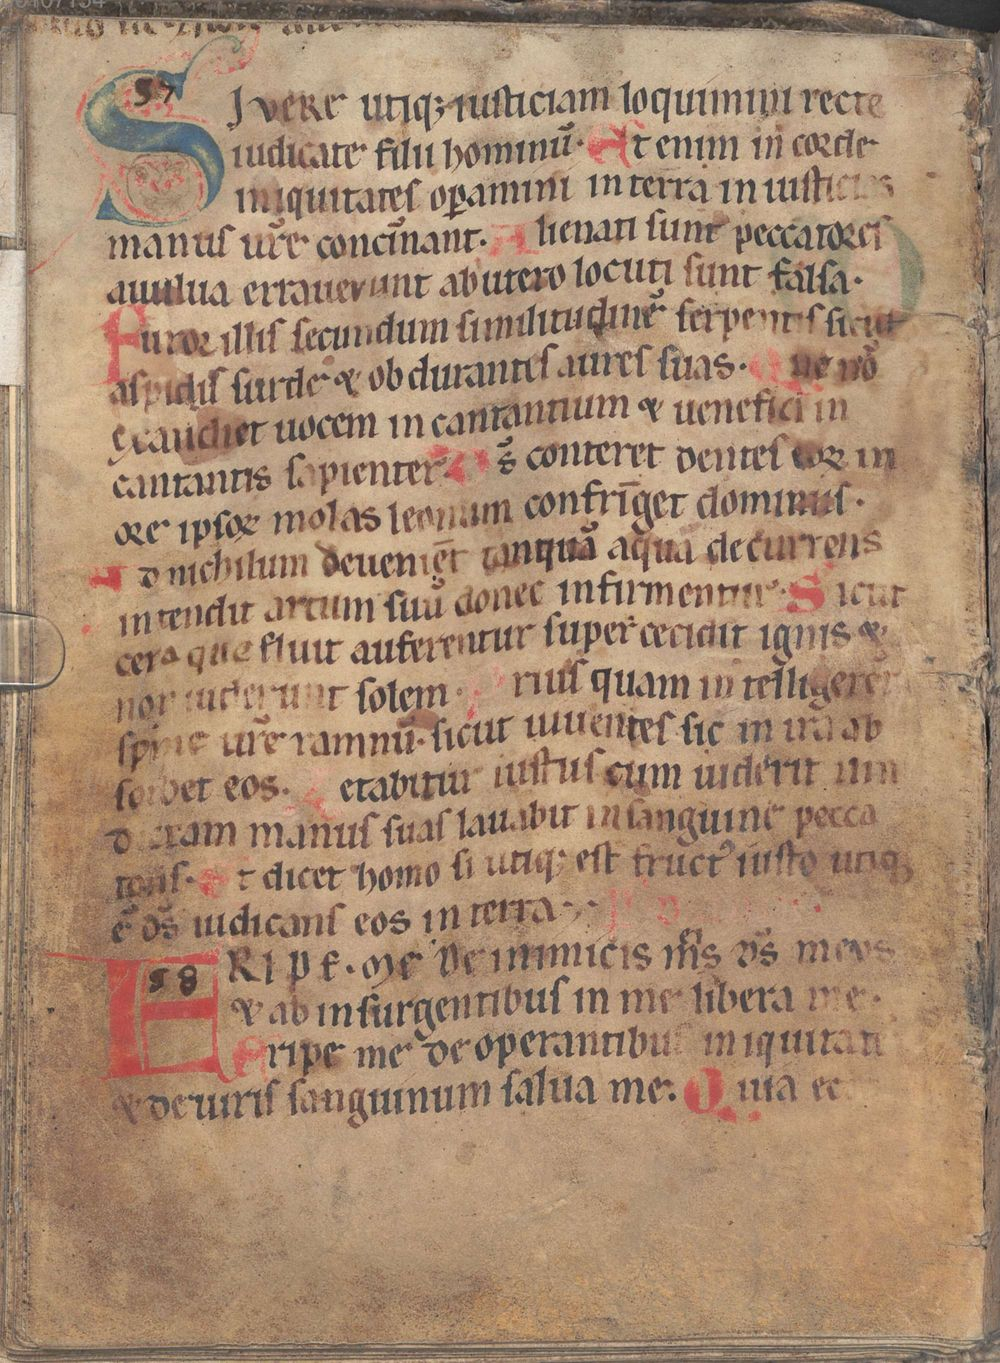 57
SI VERE utiq; iusticiam loquimini recte
iudicate filii hominū. Et enim in corde
iniquitates op̄amini in terra in iusticias
manus ur̄e concīnant. Alienati sunt peccatores
auulua errauerunt ab utero locuti sunt falsa.
Furor illis secundum similitudinē serpentis sicut
aspidis surde & obdurantes aures suas. Que nō
exaudiet uocem in cantantium & uenefici in
cantantis sapienter. Ds̄ conteret dentes eoꝝ in
ore ipsoꝝ molas leonum confrīget dominus.
Ad nichilum deueniēt tanquā aqua decurrens
intendit arcum suū donec infirmentur. Sicut
cera que fluit auferentur super cecidit ignis &
non uiderunt solem. Prius quam in telligerēt
spine ur̄e ramnū. sicut uiuentes sic in ira ab
sorbet eos. Letabitur iustus cum uiderit uin
dictam manus suas lauabit in sanguine pecca
toris. Et dicet homo si utiq; est fruct9 iusto utiq;
ē ds̄ iudicans eos in terra.
58
ERIPE. Me de inimicis m̄s ds̄ meus
& ab insurgentibus in me libera me.
Eripe me de operantibus iniquitatē
& de uiris sanguinum salua me. Quia ec